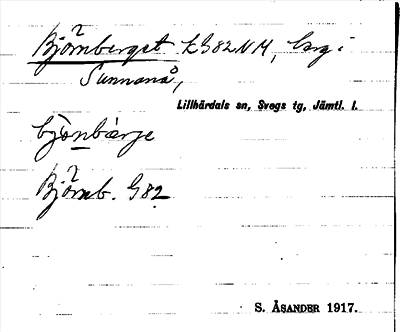 Björnberget KG82NM, berg i
Sunnanå,
Lillhärdals sn, Svegs tg, Jämtl. l.
bjö̀nbärje
Björnb. G82
S. ÅSANDER 1917.